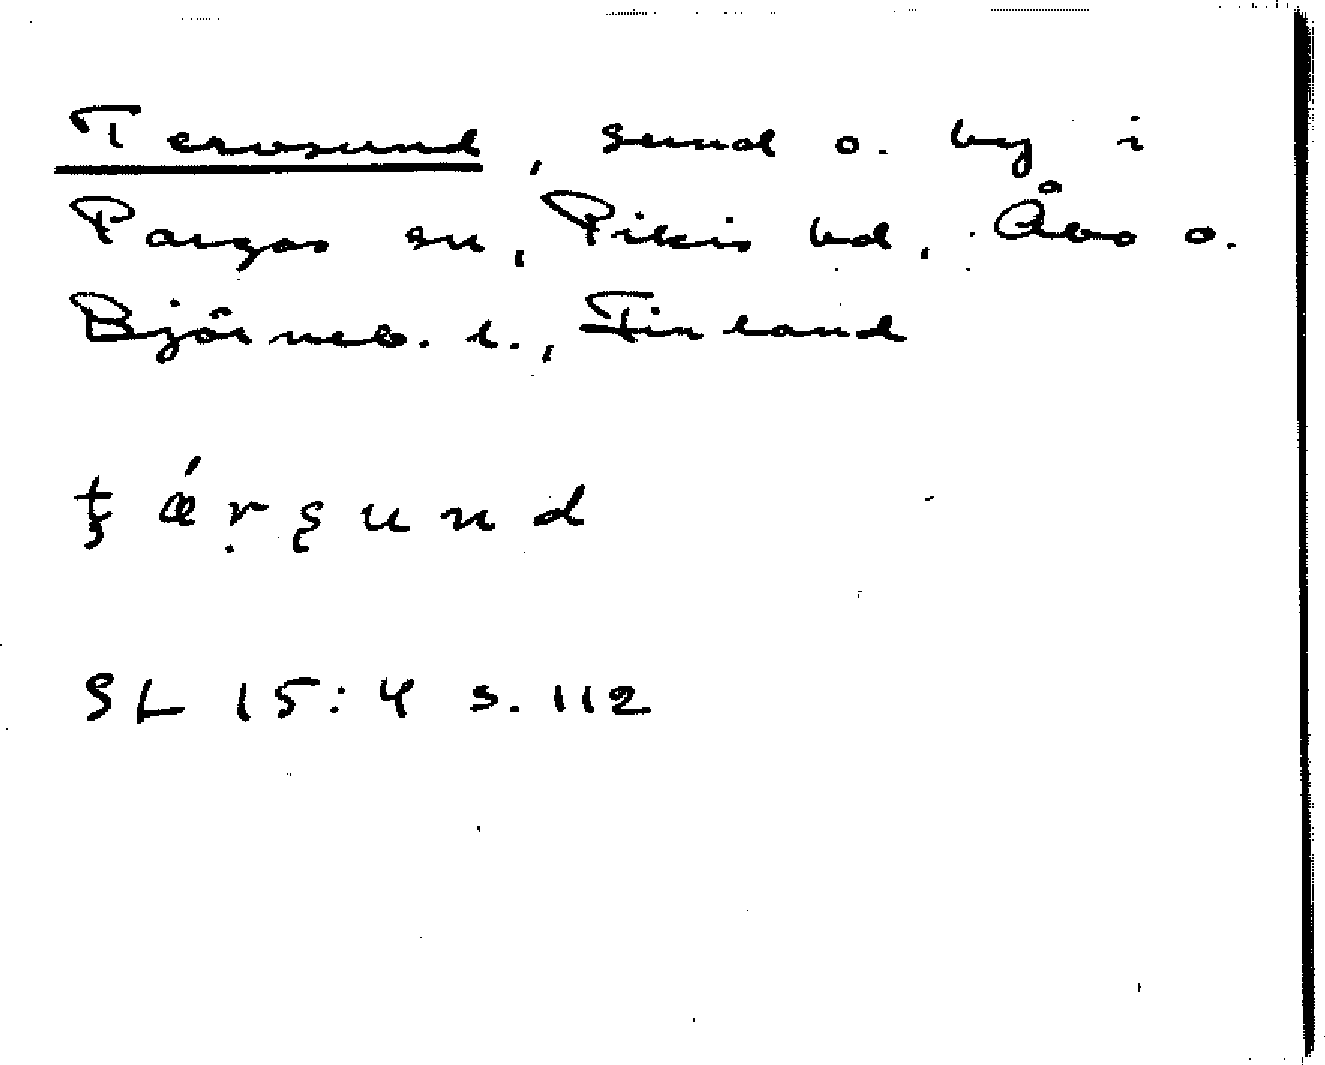 Terosund, sund o. by i
Pargas sn, Pikis hd, Åbo o.
Björneb. l., Finland
ţ ǽ ṛ ş u n d
SL 15:4 s. 112